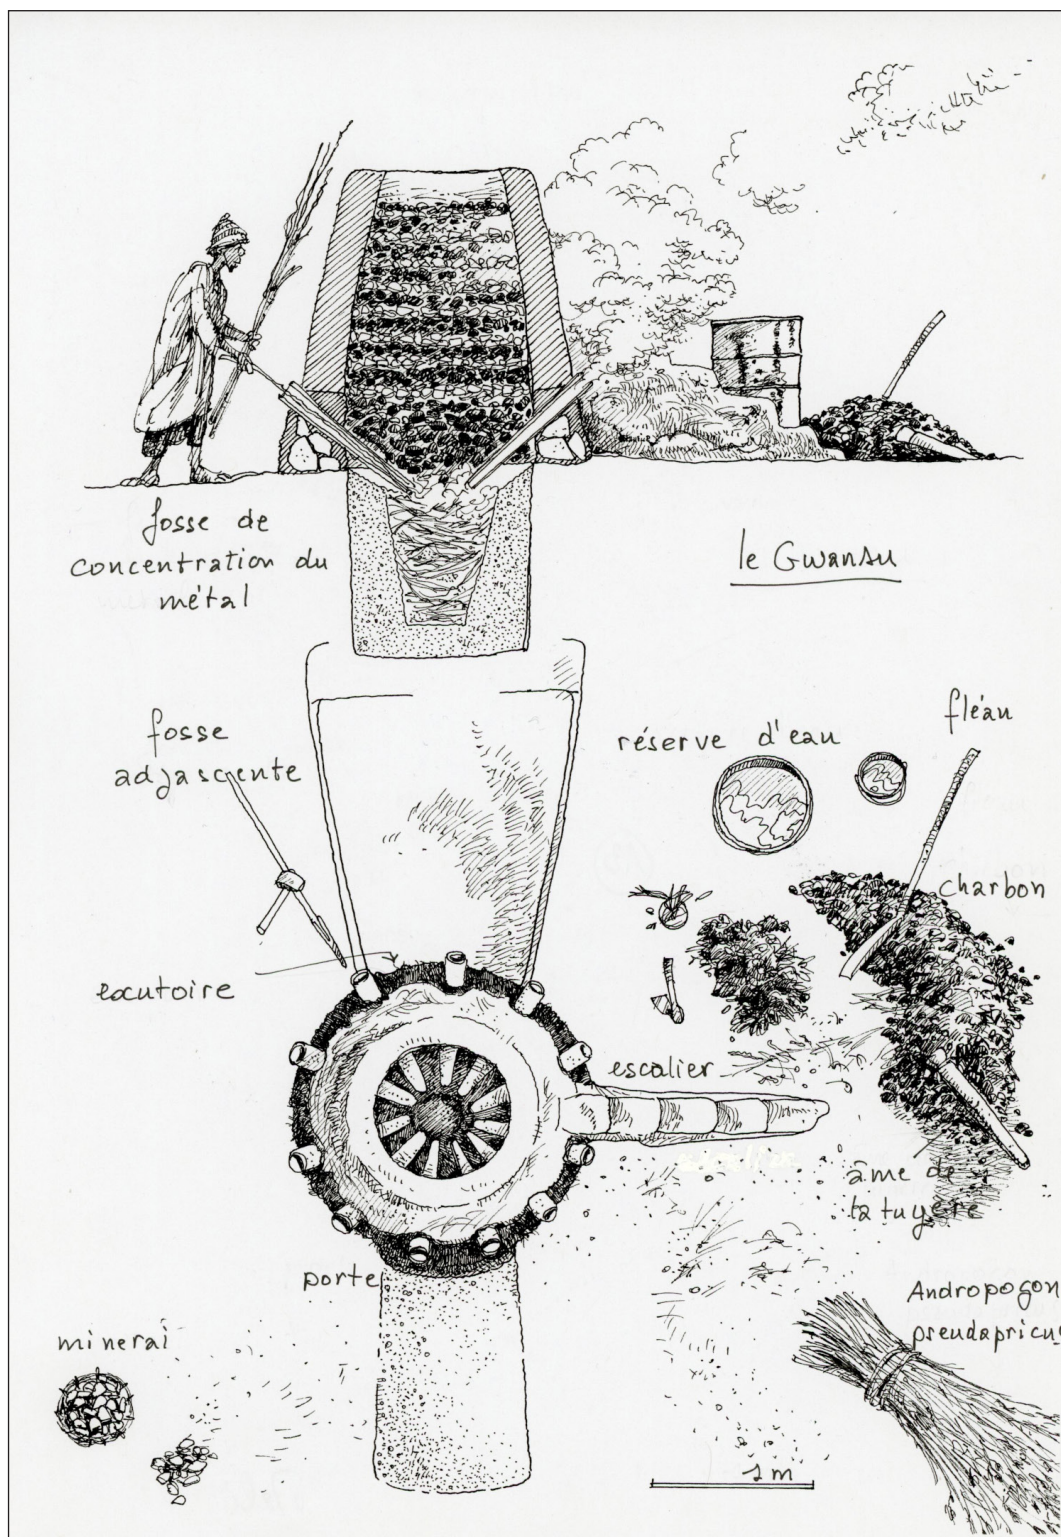 fosse de
concentration du
métal
le Gwansu
fosse
adjascente
réserve d'eau
fléau
charbon
exutoire
escalier
âme de
la tuyère
porte
Andropogon
pseudapricu
minerai
1 m